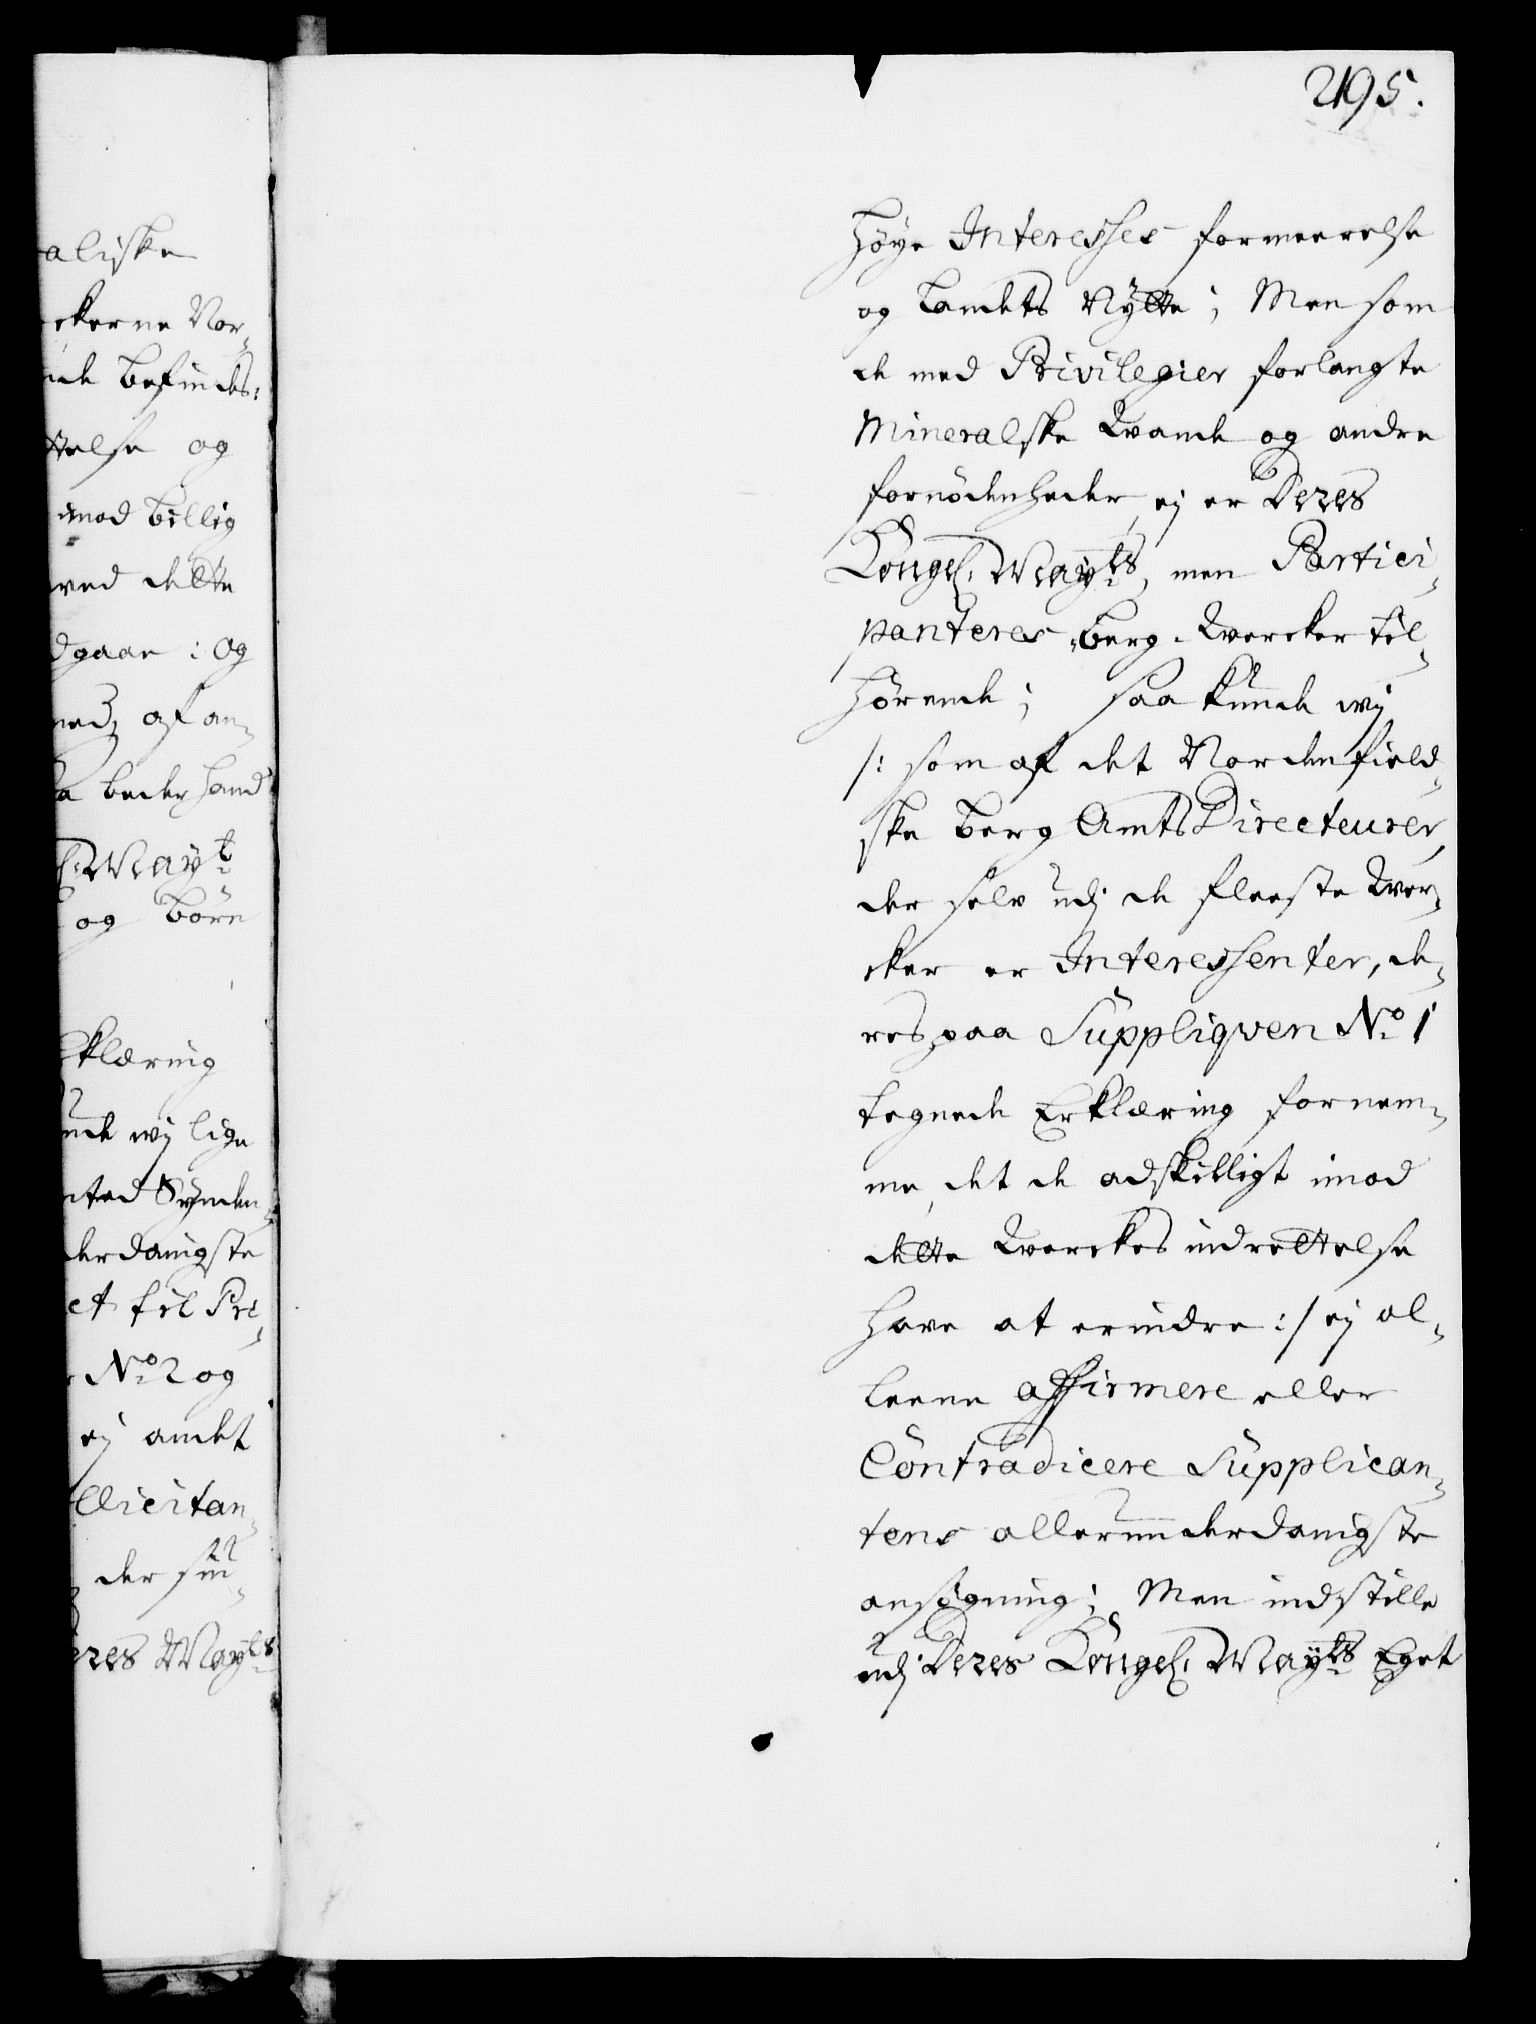 aliske
ckerne Nor-
nde befindes:
telse og
imod billig
ved dette
dgaar: og
ned, af an-
beder hand
l: Mayt
og børn
klæring
nde wij lige
nted Synden-
derdanigste
et til Pri-
No 2 og
ej andet
llicitan-
der sin-
eres Mayts
2195.
høye Interesses formeerelse
og landets Nytte; Men som
de med Privilegier forlangte
Mineralske Vande og andre
fornødenheder, ej er Deres
Kongel: Mayts, men Partici-
panteres berg-Vercker til-
hørende; saa kunde wij
/: som af det Nordenfield-
ske berg Amts Directeurer,
der selv udj de fleeste Ver-
cker er Interessenter, de-
res paa Suppliqven No 1
tegnede Erklæring fornem-
me, det de adskilligt imod
dette Verckes indrettelse
have at erindre :/ ej al-
leene affirmere eller
Contradicere Supplican-
tens allerunderdanigste
ansøgning; Men indstille
udj Deres Kongel: Mayts Eget